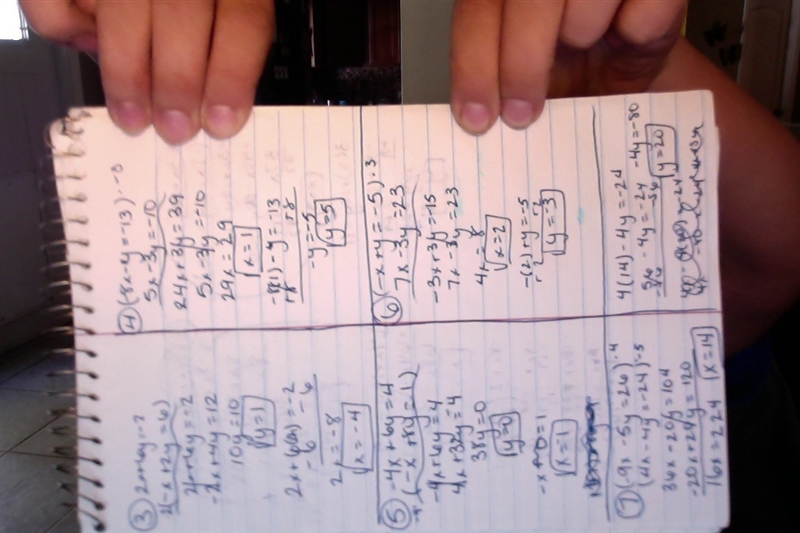 ③ 2x+6y=-2
2(-x+2y=6)
2x+6y=-2
-2x+4y=12
10y=10
y=1
2x+6(1)=-2
-6 -6
2x=-8
x=-4
④ (-8x-y=-13)·-3
5x-3y=-10
24x+3y=39
5x-3y=-10
29x=29
x=1
-8(1)-y=-13
+8 +8
-y=-5
y=5
⑤ -4x+6y=4
-4(-x+8y=1)
-4x+6y=4
4x+32y=4
38y=0
y=0
-x+0=1
x=1
⑥ (-x+y=-5)·3
7x-3y=23
-3x+3y=-15
7x-3y=23
4x=8
x=2
-(2)+y=-5
+2 +2
y=-3
⑦ (-9x-5y=26)·4
(4x-4y=-24)·-5
36x-20y=104
-20x+20y=120
16x=224
x=14
4(14)-4y=-24
56-4y=24
-56 -56
-4y=-80
y=20